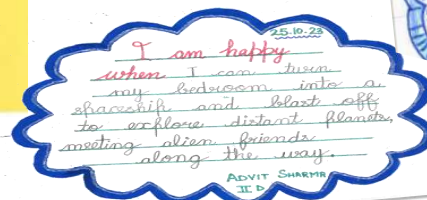 25.10.23
I am happy
when I can turn
my bedroom into a
spaceship and blast off
to explore distant planets,
meeting alien friends
along the way.
ADVIT SHARMA
II D